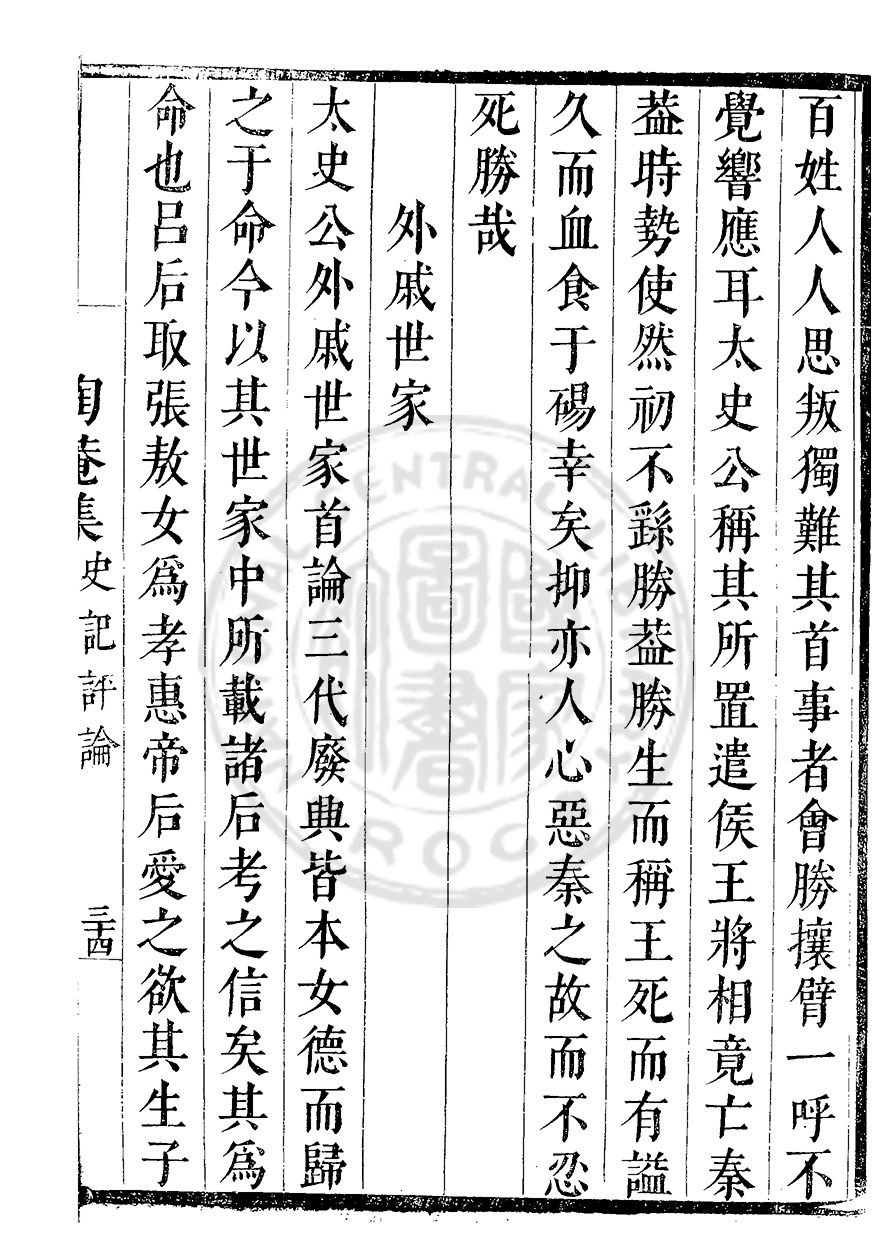 百姓人人思叛獨難其首事者會勝攘臂一呼不
覺響應耳太史公稱其所置遣侯王將相竟亡秦
葢時勢使然初不繇勝葢勝生而稱王死而有謚
久而血食于碭幸矣抑亦人心惡秦之故而不忍
死勝哉
外戚世家
太史公外戚世家首論三代廢典皆本女德而歸
之于命今以其世家中所載諸后考之信矣其爲
命也呂后取張敖女爲孝惠帝后愛之欲其生子
陶菴集 史記評論 三十四
CENTRAL
ROC
國家圖書